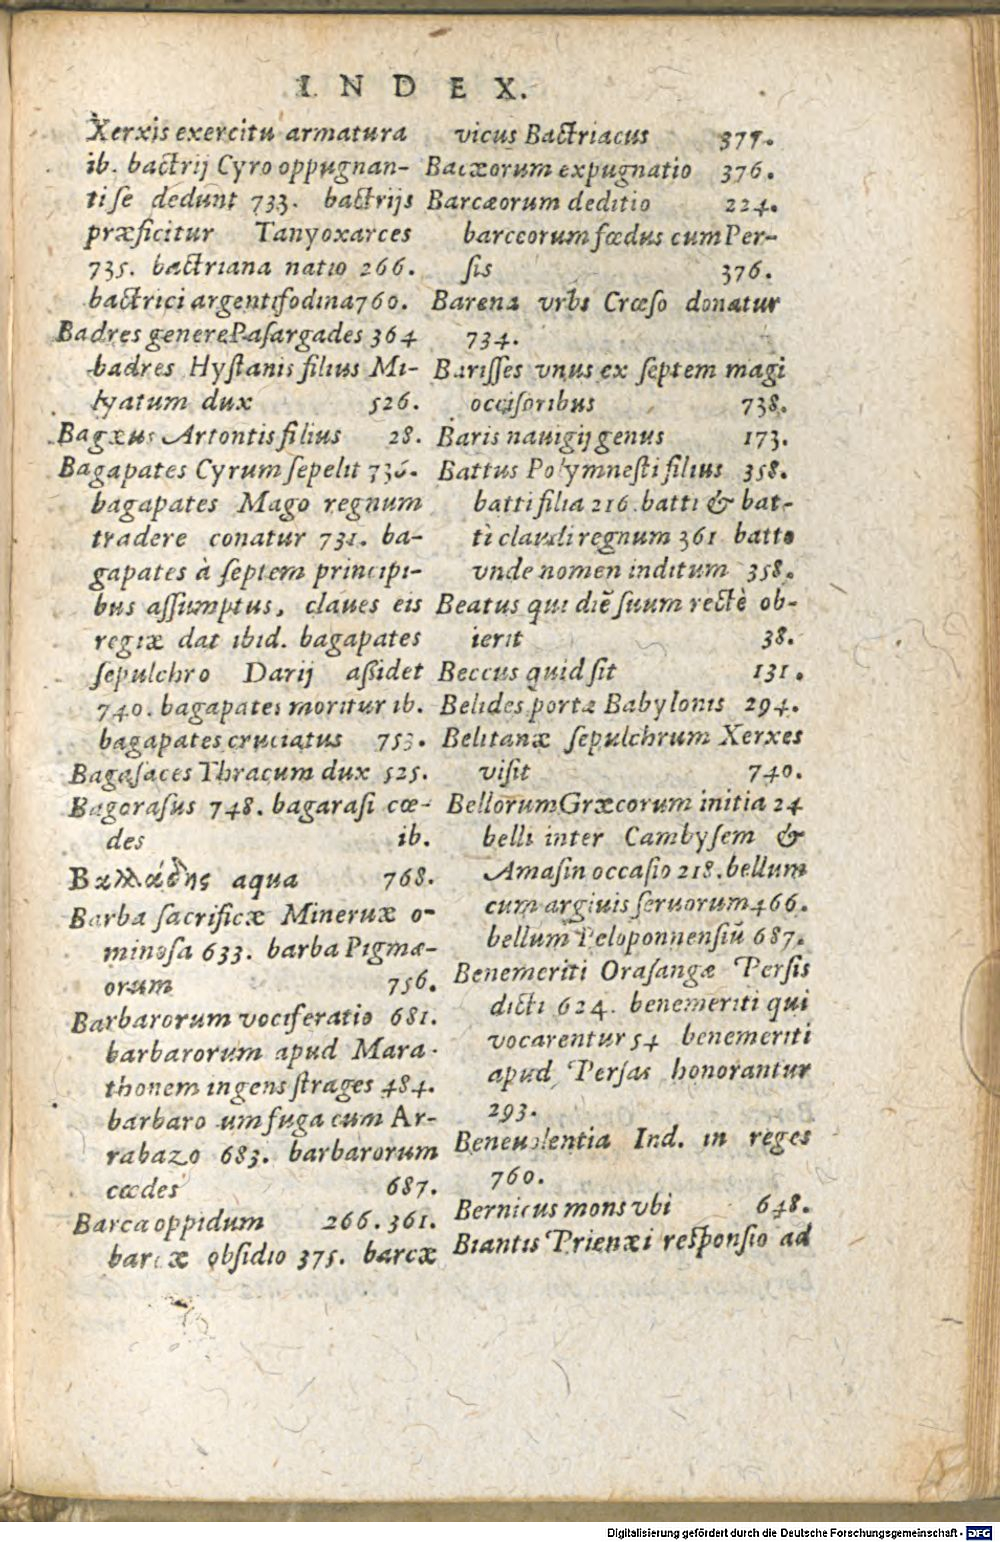 INDEX.
Xerxis exercitu armatura
ib. bactrij Cyro oppugnan-
ti se dedunt 733. bactrijs
præficitur Tanyoxarces
735. bactriana natio 266.
bactrici argentifodina 760.
Badres genere Pasargades 364
badres Hystanis filius Mi-
lyatum dux 526.
Bagæus Artontis filius 28.
Bagapates Cyrum sepelit 736.
bagapates Mago regnum
tradere conatur 731. ba-
gapates à septem principi-
bus assumptus, claues eis
regiæ dat ibid. bagapates
sepulchro Darij assidet
740. bagapates moritur ib.
bagapates cruciatus 753.
Bagasaces Thracum dux 525.
Bagorasus 748. bagarasi cæ-
des ib.
aqua 768.
Barba sacrificæ Mineruæ o-
minosa 633. barba Pigmæ-
orum 756.
Barbarorum vociferatio 681.
barbarorum apud Mara-
thonem ingens strages 484.
barbaro um fuga cum Ar-
rabazo 683. barbarorum
cædes 687.
Barca oppidum 266. 361.
barcæ obsidio 375. barcæ
vicus Bactriacus 377.
Bacæorum expugnatio 376.
Barcæorum deditio 224.
barceorum fœdus cum Per-
sis 376.
Barena vrbs Crœso donatur
734.
Barisses vnus ex septem magi
occisoribus 738.
Baris nauigij genus 173.
Battus Polymnesti filius 358.
batti filia 216. batti & bat-
ti claudi regnum 361 batto
vnde nomen inditum 358.
Beatus qui diē suum rectè ob-
ierit 38.
Beccus quid sit 131.
Belides portæ Babylonis 294.
Belitanæ sepulchrum Xerxes
visit 740.
Bellorum Græcorum initia 24
belli inter Cambysem &
Amasin occasio 218. bellum
cum argiuis seruorum 466.
bellum Peloponnensiū 687.
Benemeriti Orasangæ Persis
dicti 624. benemeriti qui
vocarentur 54 benemeriti
apud Persas honorantur
293.
Beneuolentia Ind. in reges
760.
Bernicus mons vbi 648.
Biantis Prienæi responsio ad
Digitalisierung gefördert durch die Deutsche Forschungsgemeinschaft - DFG